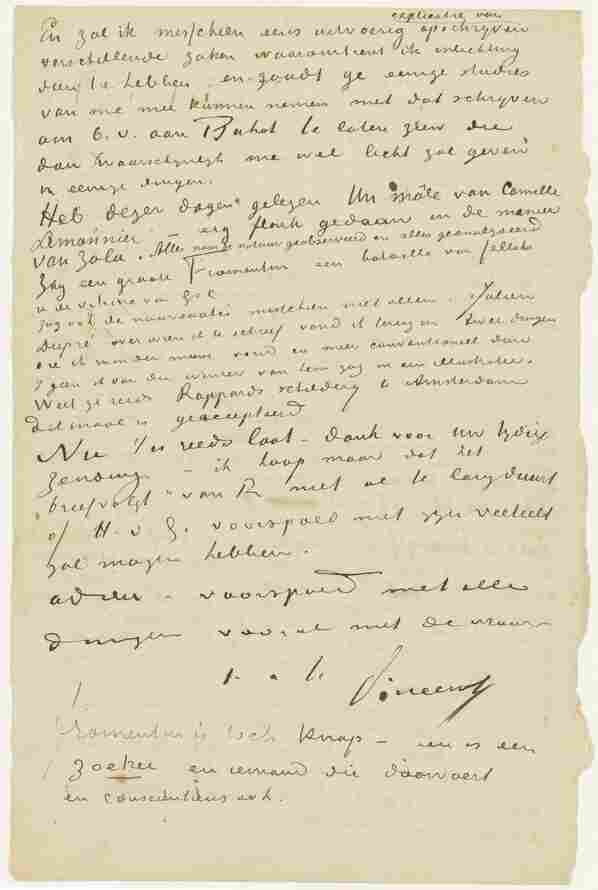 explicatie van
En zal ik misschien eens uitvoerig opschrijven
verschillende zaken waaromtrent ik inlichting
dien te hebben en zoudt ge eenige studies
van me mee kunnen nemen met dat schrijven
om b.v. aan Buhot te laten zien die
dan waarschijnlijk me wel licht zal geven
in eenige dingen.
Heb dezer dagen gelezen Un mâle van Camille
Lemonnier – erg flink gedaan in de manier
van Zola. Alles naar de natuur geobserveerd en alles geanalyseerd
Zag een groote Fromentin een bataille van fellahs
in de vitrine van G&C
Zag ook de nouveautés misschien niet allen. Julien
Dupré over wien ik u schreef vond ik terug in twee dingen
die ik minder mooi vond en meer conventioneel dan
't geen ik van den winter van hem zag in een illustratie.
Weet ge reeds Rappards schilderij te Amsterdam
ditmaal is geaccepteerd
Nu 't is reeds laat – dank voor uw tydige
zending – ik hoop maar dat het
van R niet al te lang duurt
of H.v.G. voorspoed met zyn
zal mogen hebben.
adieu – voorspoed met alle
dingen vooral met de vrouw
t. a. t.
Vincent
Fromentin is toch knap – een is een
zoeker en iemand die doorvoert
en consciencieus ook.